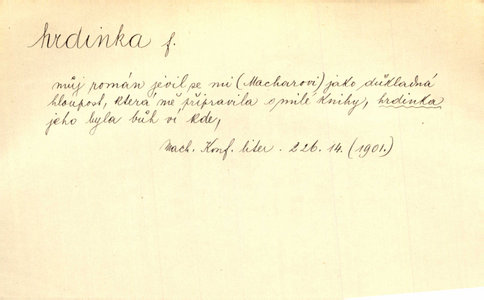 hrdinka f.
můj román jevil se mi (Macharovi) jako důkladná
hloupost, která mě připravila o milé knihy, hrdinka
jeho byla bůh ví kde,
Mach. Konf. liter. 226. 14. (1901.)